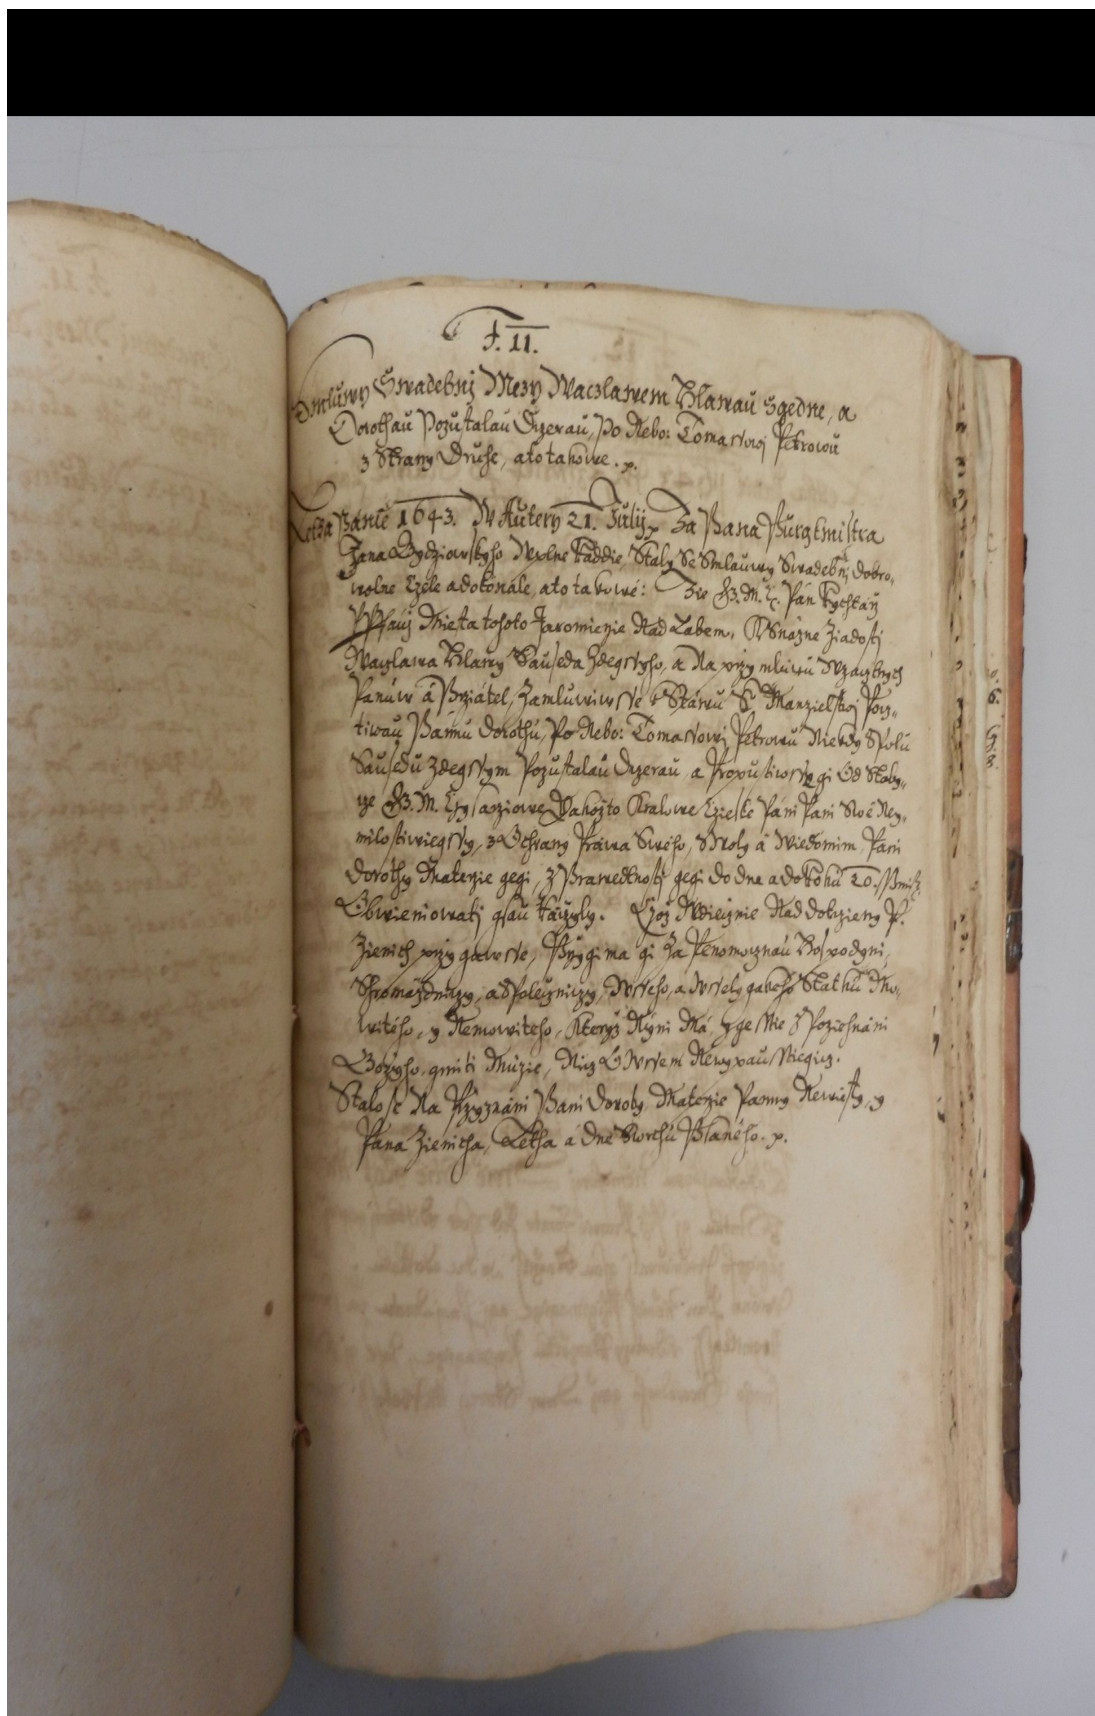 F. 11.
Smluwy Swadebnj Mezy Waczlawem Hlawau Zgedne, a
Dorothau Pozustalau Dczerau, Po Nebo: Tomassowj Petrowu
z Strany Druhe, ato takowe.
Letha Panie 1643. W Autery 21. Julij. Za Pana Purgkmistra
Jana Wolne Raddie, Staly Se Smlauwy Swadebnj dobro-
wolne Czele a dokonale, ato takowé: Zie Pán Rychtarz
Miesta tohoto Jaromierzie Nad Labem, K Snazne Ziadosti
Waczlawa Hlawy Sauseda Zdegssyho, a Na przymluwu Wzacznych
Panuw á Przátel, Zamluwiwsse k Stáwu S. Manzielstwj Pocz-
tiwau Pannu Dorothu, Po Nebo: Tomassowj Petrowu Niekdy Spolu
Sausedu Zdegssym Pozustalau Dczerau, a Propustiwssy gi Od Stoly-
cze G. M. Czysarziowe Yakozto Kralowe Czieske Pani Pani Swé Ney-
milostiwiegssy, z Ochrany Práwa Swého, S Woly á Wiedomim, Pani
Dorothy Materzie gegi, z Sprawedlnosti gegi do dne a do Roku 20.
Obwieniowati gsau Raczyly. Coz Wdieczne Nad dobrzieny P.
Zienich przygawsse, Przygima gi Za Plnomocznau Hospodyni,
Shromazdniczy, a Spoleczniczy, Wsseho, a Wsselygakeho Statku Mo-
witého, y Nemowiteho, Kteryz Nyni Má, y gesstie z Poziehnáni
Bozyho, gmiti Muzie, Nicz O Wssem Newypausstiegicz.
Stalo se Na Przyznáni Pani Doroty Materzie Panny Newiesty, y
Pána Zienicha, Letha á Dne Swrchu Psaného.